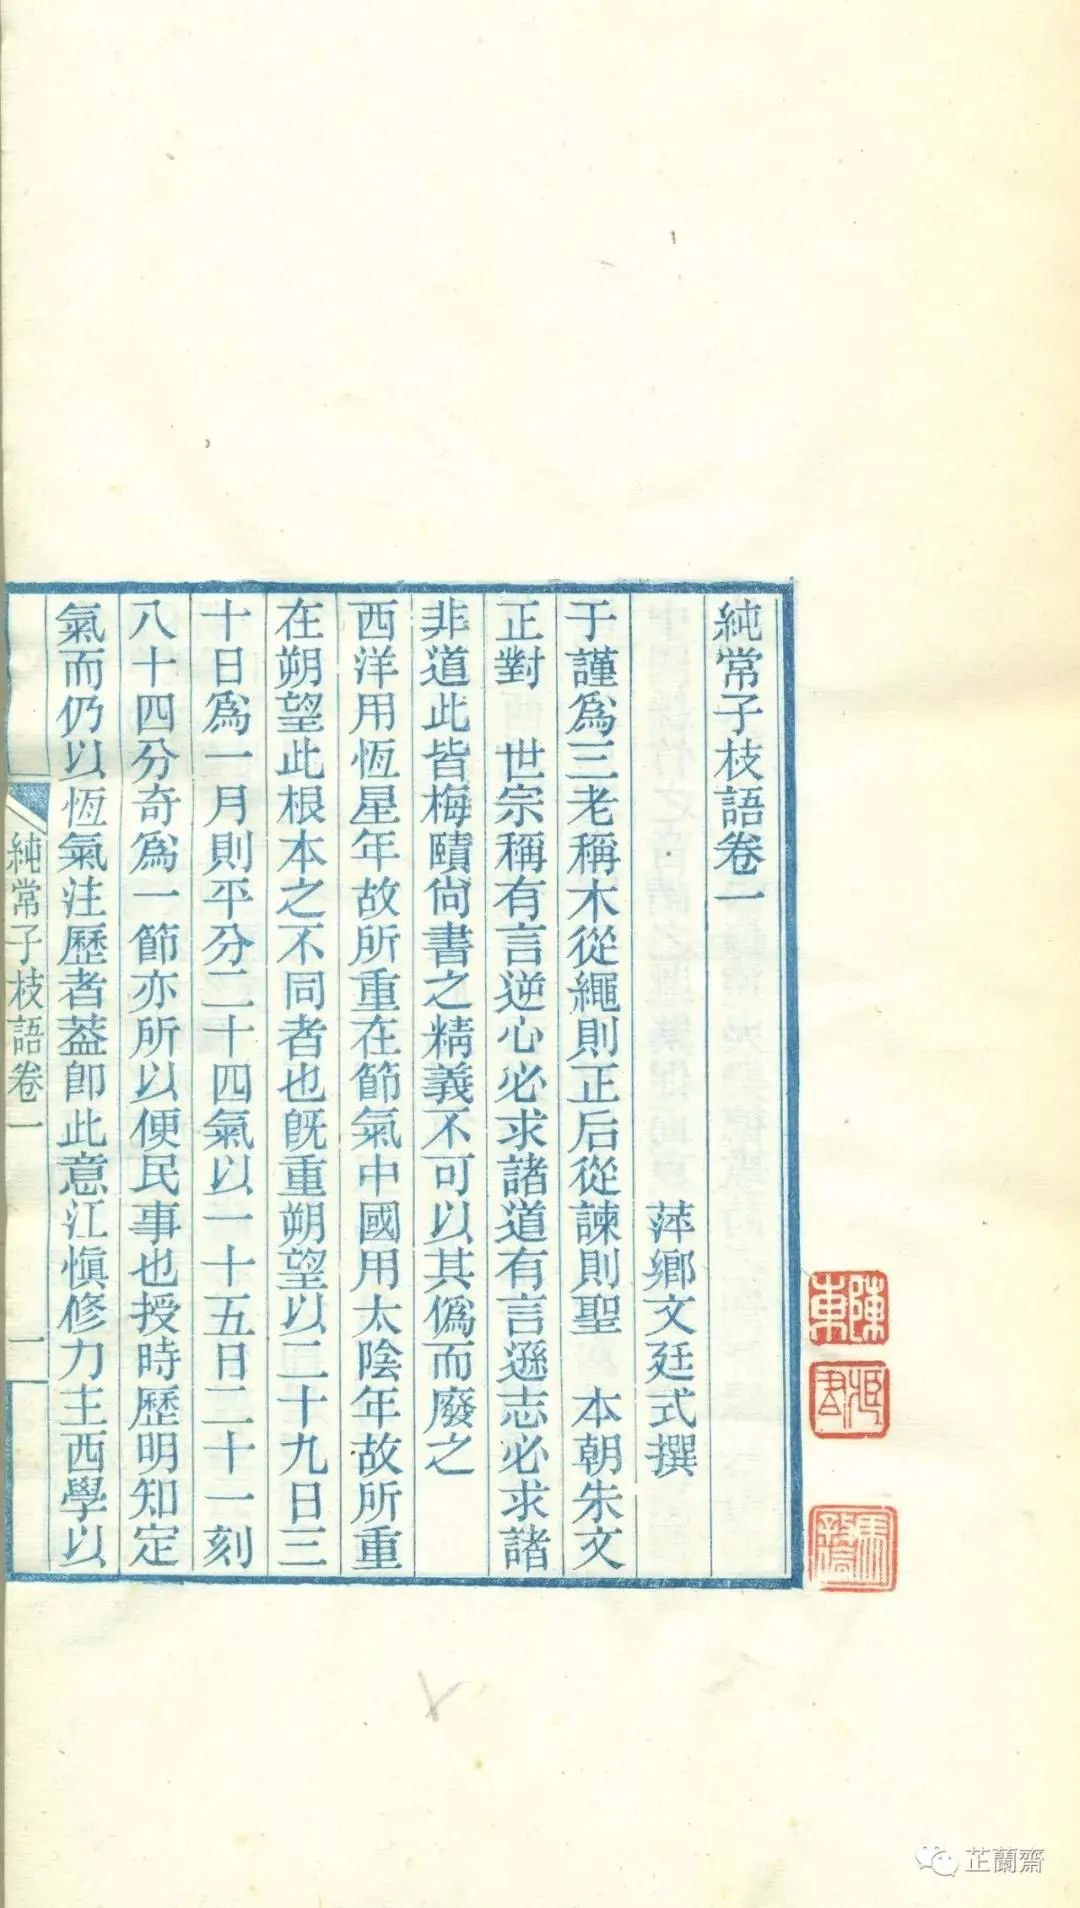 純常子枝語卷一
萍鄉文廷式撰
于謹爲三老稱木從繩則正后從諫則聖　本朝朱文
正對　世宗稱有言逆心必求諸道有言遜志必求諸
非道此皆梅賾尙書之精義不可以其僞而廢之
西洋用恆星年故所重在節氣中國用太陰年故所重
在朔望此根本之不同者也旣重朔望以二十九日三
十日爲一月則平分二十四氣以一十五日二十一刻
八十四分奇爲一節亦所以便民事也授時歷明知定
氣而仍以恆氣注歷者葢卽此意江愼修力主西學以
純常子枝語卷一
一
芷蘭齋